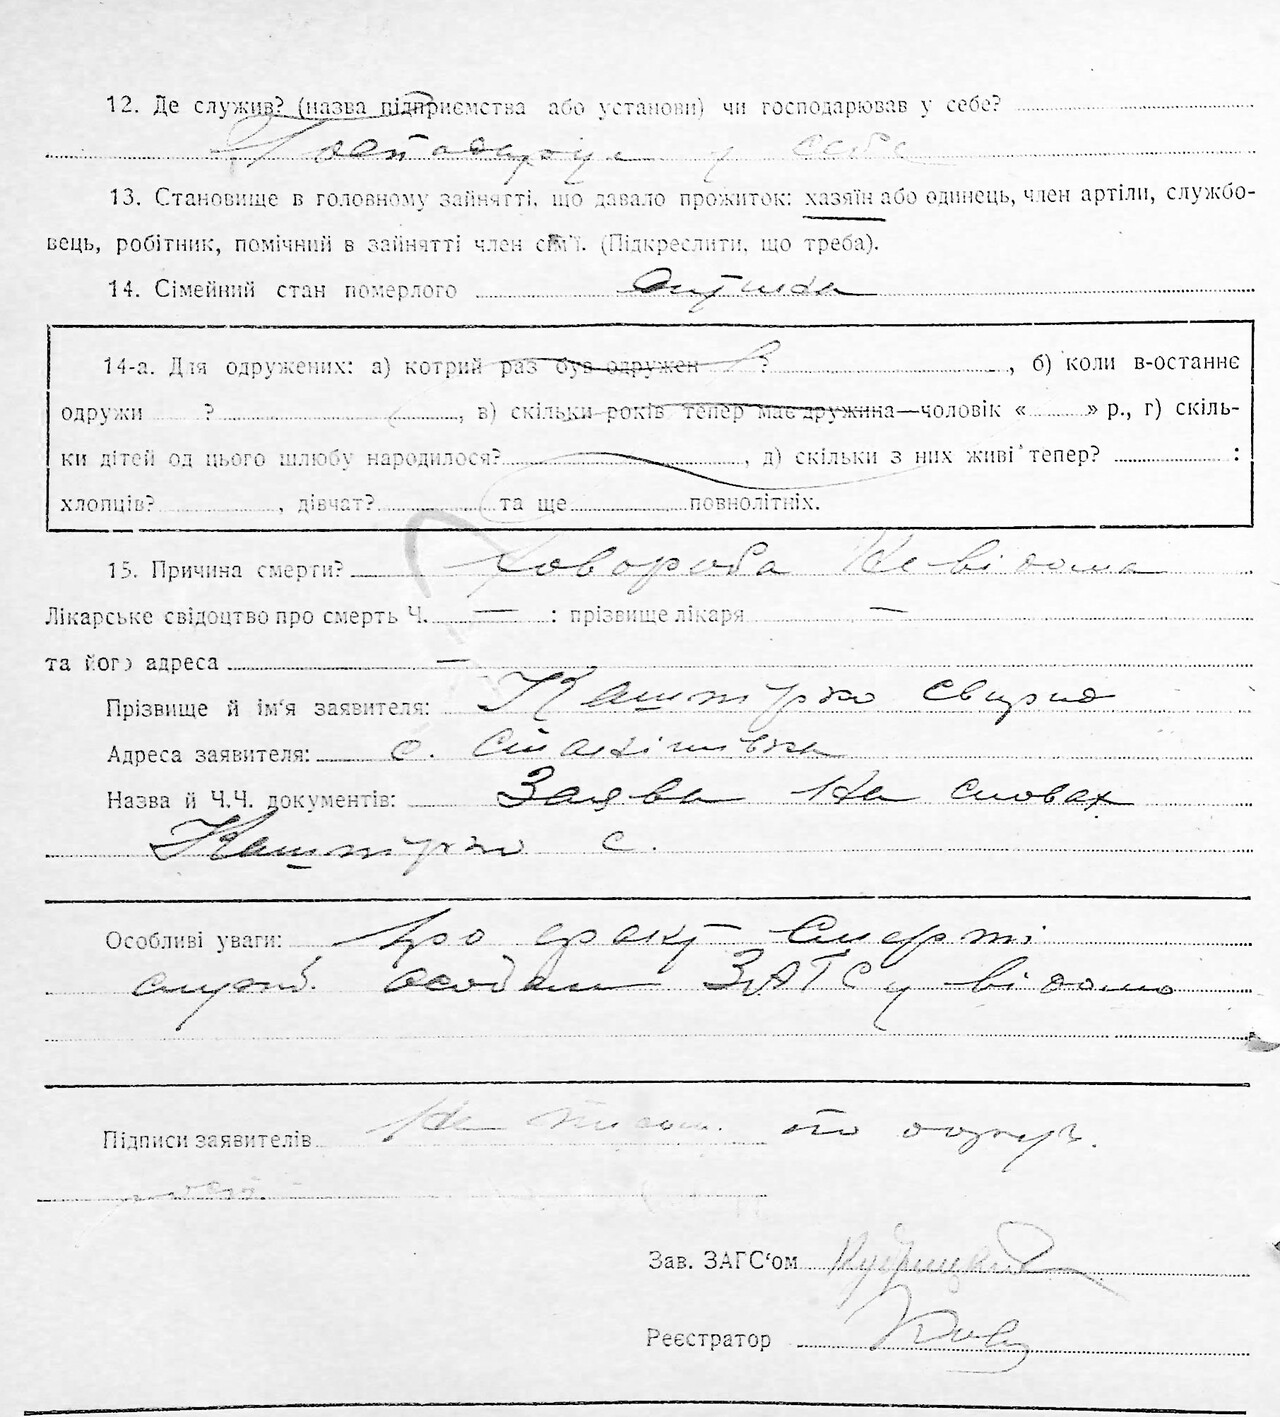 12. Де служив? (назва підприємства або установи) чи господарював у себе?
Господарює у себе
13. Становище в головному зайнятті, що давало прожиток: хазяїн або одинець, член артіли, службо-
вець, робітник, помічний в зайнятті член сім'ї. (Підкреслити, що треба).
14. Сімейний стан померлого
14-а. Для одружених: а) котрий раз був одружен ?, б) коли в-останнє
одружи ?, в) скільки років тепер має дружина—чоловік « » р., г) скіль-
ки дітей од цього шлюбу народилося?, д) скільки з них живі тепер? :
хлопців?, дівчат? та ще повнолітніх.
15. Причина смерти? Хвороба Не відома
Лікарське свідоцтво про смерть Ч. — : прізвище лікаря —
та його адреса —
Прізвище й ім'я заявителя: Свирид
Адреса заявителя: с.
Назва й Ч.Ч. документів: Заява на словах
С.
Особливі уваги: Про факт Смерті
особам ЗАГСу відомо
Підписи заявителів Не
Зав. ЗАГС'ом Кудрицкий
Реєстратор